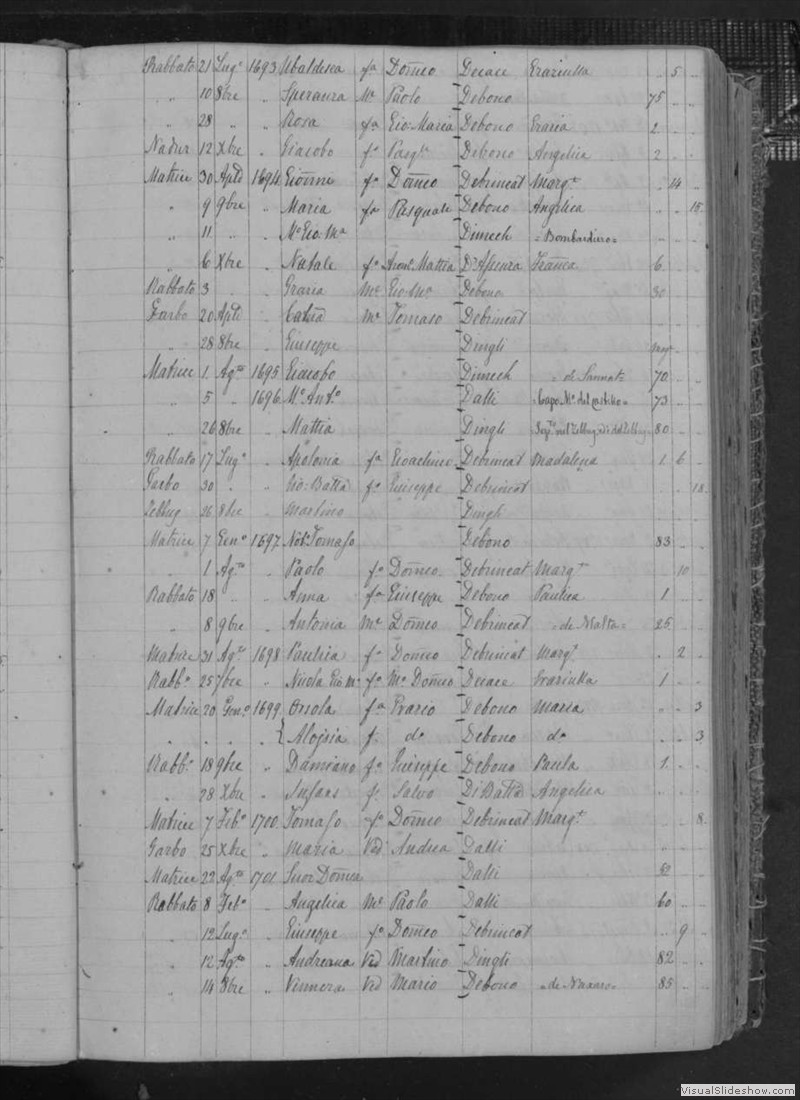 Rabbato 21 Lugº 1693 Ubaldesca fª Doṁco Deiace Graziulla .. 5 ..
" 10 8bre " Speranza Mª Paolo Debono 75 ..
" 28 " " Rosa fª Gio: Maria Debono Grazia 2 ..
Nadur 12 Xbre " Giacobo fº Pasqle Debono Angelica 2 ..
Matrice 30 Aple 1694 Gioanne fº Doṁco Debrincat Margta .. 14 ..
" 9 9bre " Maria fª Pasquale Debono Angelica .. .. 15
" 11 " " Mº Gio. Mª Dimech = Bombardiero =
" 6 Xbre " Natale fº Mattia 6 ..
Rabbato 3 " " Grazia Mª Gio: Mª Debono 30 ..
Garbo 20 Aple " Catña Mª Tomaso Debrincat
" 28 8bre " Giuseppe Dingli
Matrice 1 Agto 1695 Giacobo Dimech = de Sannat = 70 ..
" 5 " 1696 Mº Antº Dalli = Capo Mº del Castello = 73 ..
" 26 8bre " Mattia Dingli 80 ..
Rabbato 17 Lugº " Apolonia fª Gioachino Debrincat Madalena 1 6 ..
Garbo 30 " " Gio: Batta fº Giuseppe Debrincat .. .. 18
Zebbug 26 8bre " Martino Dingli
Matrice 7 Genº 1697 Notº Tomaso Debono 83 ..
" 1 Agto " Paolo fº Doṁco Debrincat Margta .. 10 ..
Rabbato 18 " " Anna fª Giuseppe Debono Paulica 1 ..
" 8 9bre " Antonia Mª Doṁco Debrincat = de Malta = 25 ..
Matrice 31 Agto 1698 Paulica fª Doṁco Debrincat Margta .. 2 ..
Rabbº 25 7bre " Nicola Gio Mª fº Mº Doṁco Deiace Graziulla 1 ..
Matrice 20 Genº 1699 Orsola fª Prazio Debono Maria .. .. 3
" " " { Aloysia fª do Debono do .. .. 3
Rabbº 18 9bre " Damiano fº Giuseppe Debono Paula 1 ..
" 28 Xbre " Infans fº Salvo Di Batta Angelica
Matrice 7 Febº 1700 Tomaso fº Doṁco Debrincat Margta .. .. 8
Garbo 25 Xbre " Maria Ved Andrea Dalli
Matrice 22 Agto 1701 Suor Doṁca Dalli 52
Rabbato 8 Febº " Angelica Mª Paolo Dalli 60 ..
" 12 Lugº " Giuseppe fº Doṁco Debrincat .. 9 ..
" 12 Agto " Andreana Ved Martino Dingli 82 ..
" 14 8bre " Vennera Ved Mario Debono = de Naxaro = 85 ..
VisualSlideshow.com